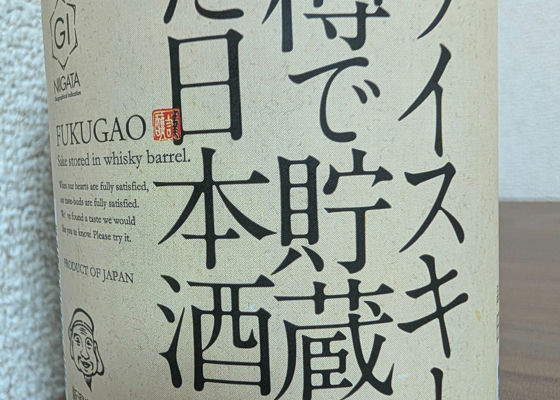 イスキー
樽で貯蔵
た日本酒
GI
NIIGATA
Geographical Indication
FUKUGAO
Sake stored in whisky barrel.
When our hearts are fully satisfied,
our taste-buds are fully satisfied.
We've found a taste we would
like you to know. Please try it.
PRODUCT OF JAPAN